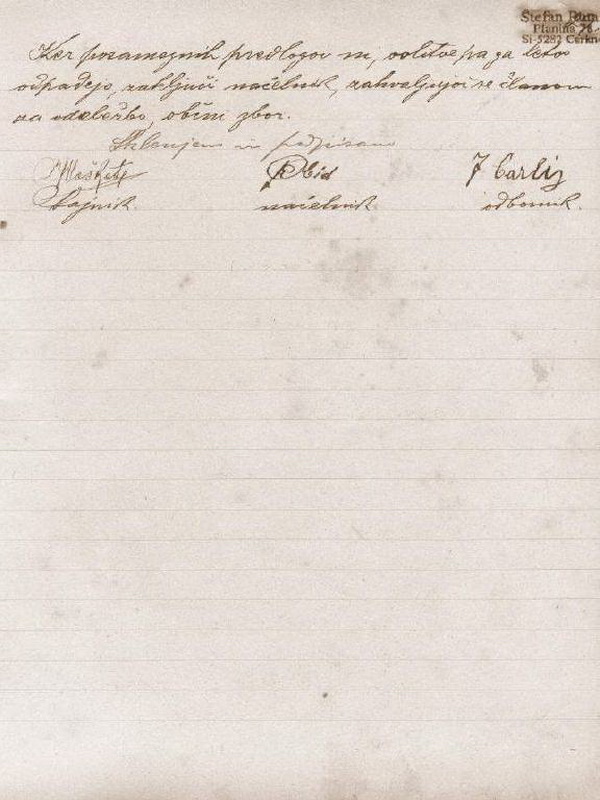 Štefan
Planina 76
SI-5282 Cerkno
Ker posameznih predlogov ni, volitve pa za letos
odpadejo, zaključi načelnik, zahvaljujoč se članom
za udeležbo, občni zbor.
Sklenjeno in podpisano
F Carli
tajnik. načelnik. odbornik.